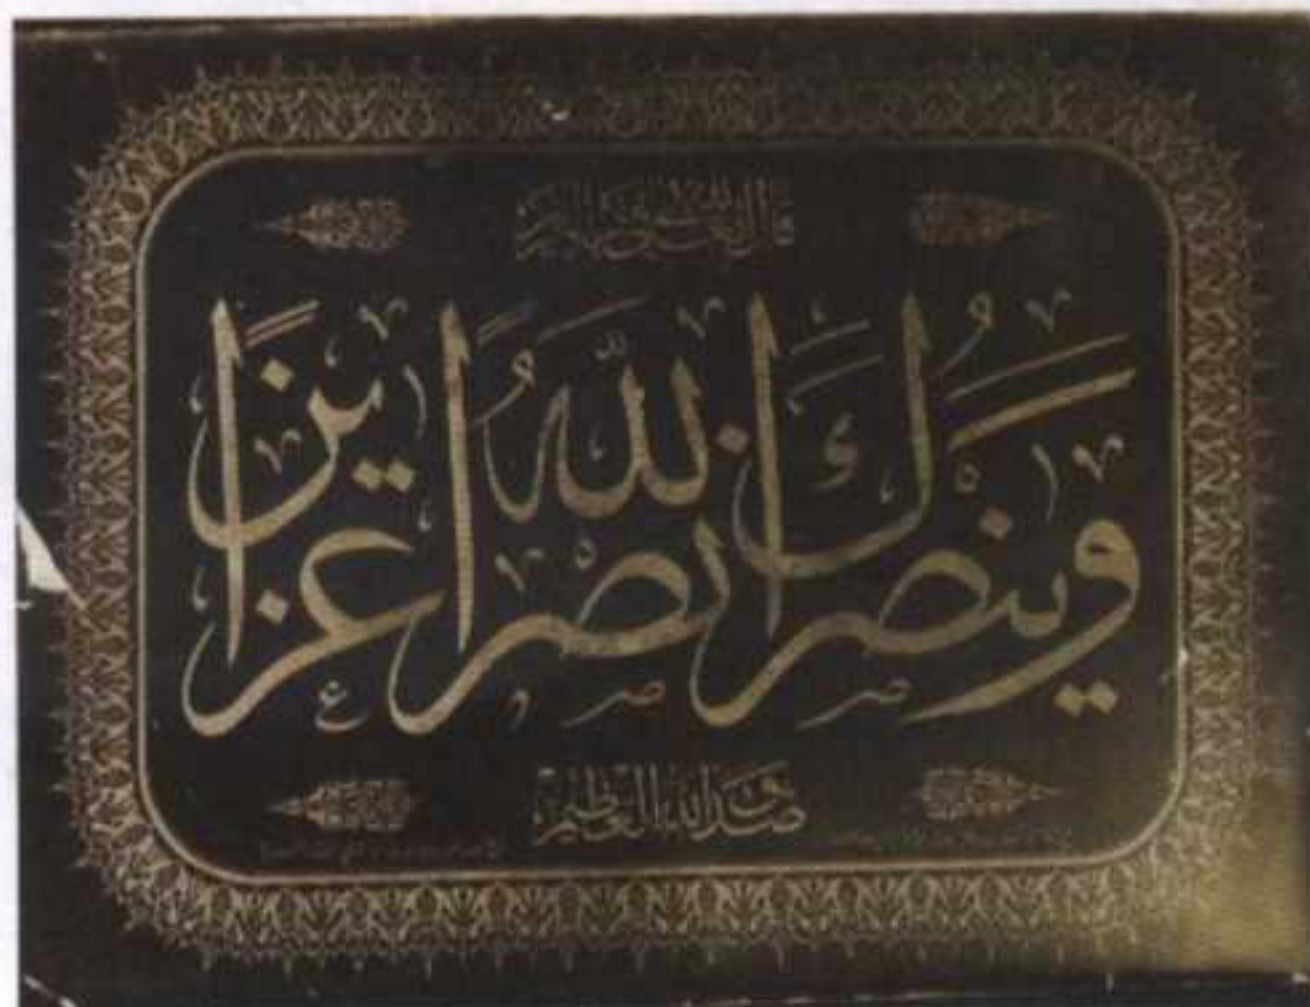 قال الله تعالى
وَيَنْصُرَكَ اللَّهُ نَصْرًا عَزِيزًا
صدق الله العظيم